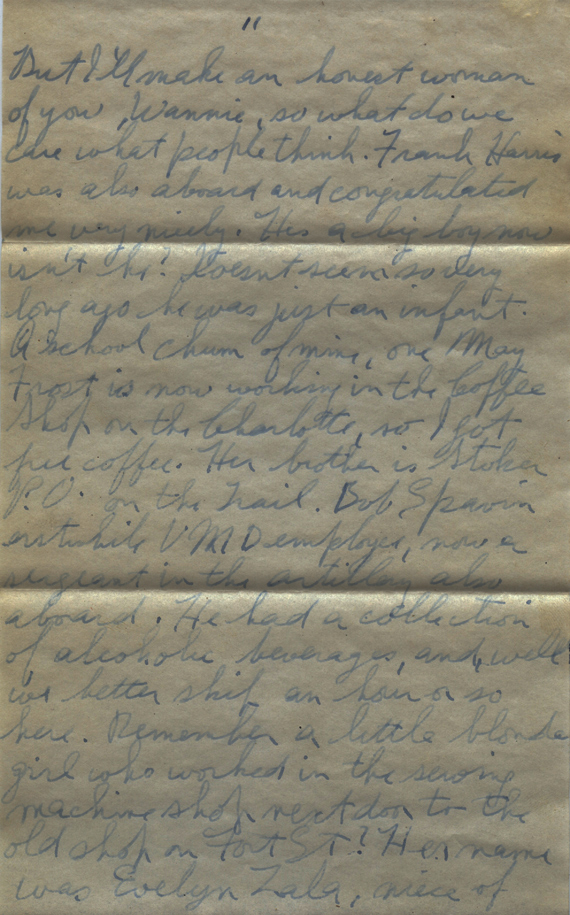 "
But I'll make an honest woman
of you, Wannie, so what do we
care what people think. Frank Harris
was also aboard and congratulated
me very nicely. He's a big boy now
isn't he? Doesn't seem so very
long ago he was just an infant.
A school chum of mine, one May
Frost is now working in the Coffee
Shop on the Charlotte, so I got
free coffee. Her brother is Stoker
P.O. on the Trail. Bob Spavin
erstwhile VMD employee, now a
sergeant in the artillery also
aboard. He had a collection
of alcoholic beverages, and, well
we better skip an hour or so
here. Remember a little blonde
girl who worked in the sewing
machine shop next door to the
old shop on Fort St? Her name
was Evelyn Zala, niece of